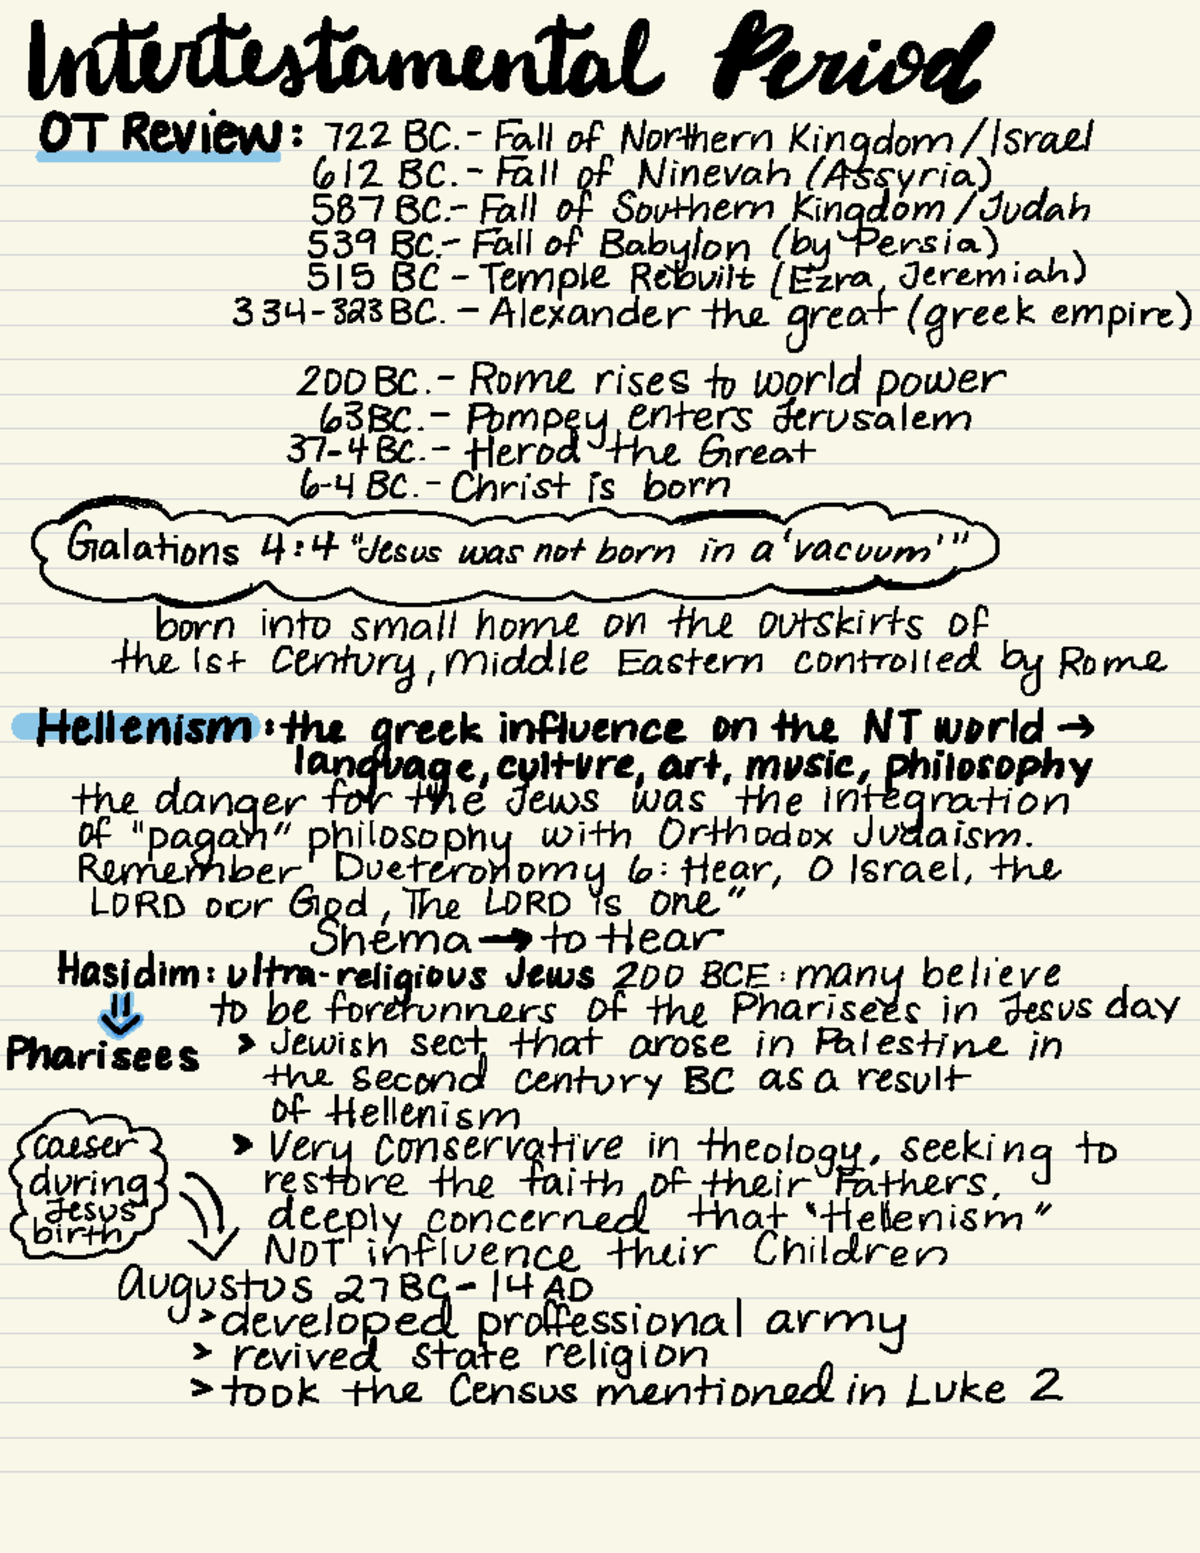 Intertestamental Period
OT Review: 722 BC. - Fall of Northern Kingdom/Israel
612 BC. - Fall of Ninevah (Assyria)
587 BC. - Fall of Southern Kingdom/Judah
539 BC. - Fall of Babylon (by Persia)
515 BC - Temple Rebuilt (Ezra, Jeremiah)
334-323 BC. - Alexander the great (greek empire)
200 BC. - Rome rises to world power
63 BC. - Pompey enters Jerusalem
37-4 BC. - Herod the Great
6-4 BC. - Christ is born
Galations 4:4 "Jesus was not born in a 'vacuum'"
born into small home on the outskirts of
the 1st century, Middle Eastern controlled by Rome
Hellenism: the greek influence on the NT world →
language, culture, art, music, philosophy
the danger for the Jews was the integration
of "pagan" philosophy with Orthodox Judaism.
Remember Dueteronomy 6: Hear, O Israel, the
LORD our God, The LORD is one"
Shema → to Hear
Hasidim: ultra-religious Jews 200 BCE: many believe
to be forerunners of the Pharisees in Jesus day
Pharisees > Jewish sect that arose in Palestine in
the second century BC as a result
of Hellenism
> Very conservative in theology, seeking to
restore the faith of their Fathers,
deeply concerned that "Hellenism"
NOT influence their Children
caeser
during
Jesus
birth
Augustus 27 BC - 14 AD
> developed proffessional army
> revived state religion
> took the Census mentioned in Luke 2